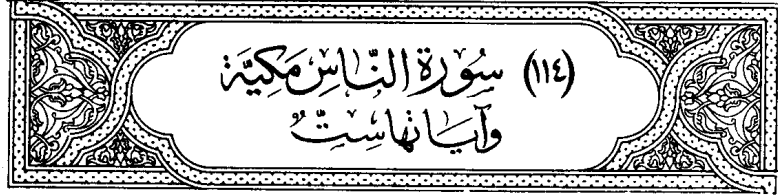 (١١٤) سُورَة النَّاسِ مَكِيَّة
وَآيَاتُهَا سِتٌّ